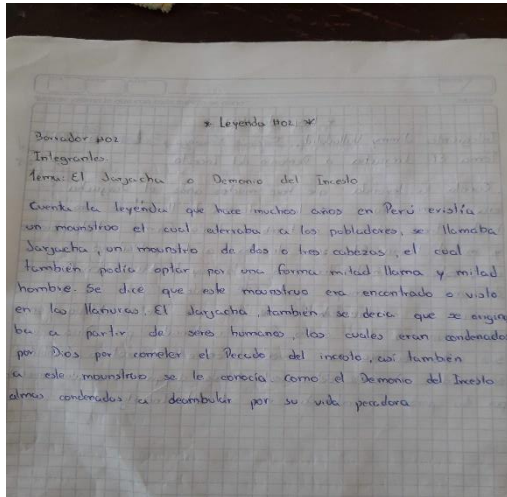 * Leyenda #02 *
Borrador #02
Integrantes
Tema: El Jarjacha o Demonio del Incesto
Cuenta la leyenda que hace muchos años en Perú existía
un mounstroo el cual aterraba a los pobladores, se llamaba
Jarjacha, un mounstro de dos o tres cabezas, el cual
también podía optar por una forma mitad llama y mitad
hombre. Se dice que este mounstruo era encontrado o visto
en las llanuras. El Jarjacha, también se decia que se origin
ba a partir de seres humanos, los cuales eran condenados
por Dios por cometer el Pecado del incesto, así también
a este mounstruo se le conocía como el Demonio del Incesto
almas condenadas a deambular por su vida pecadora